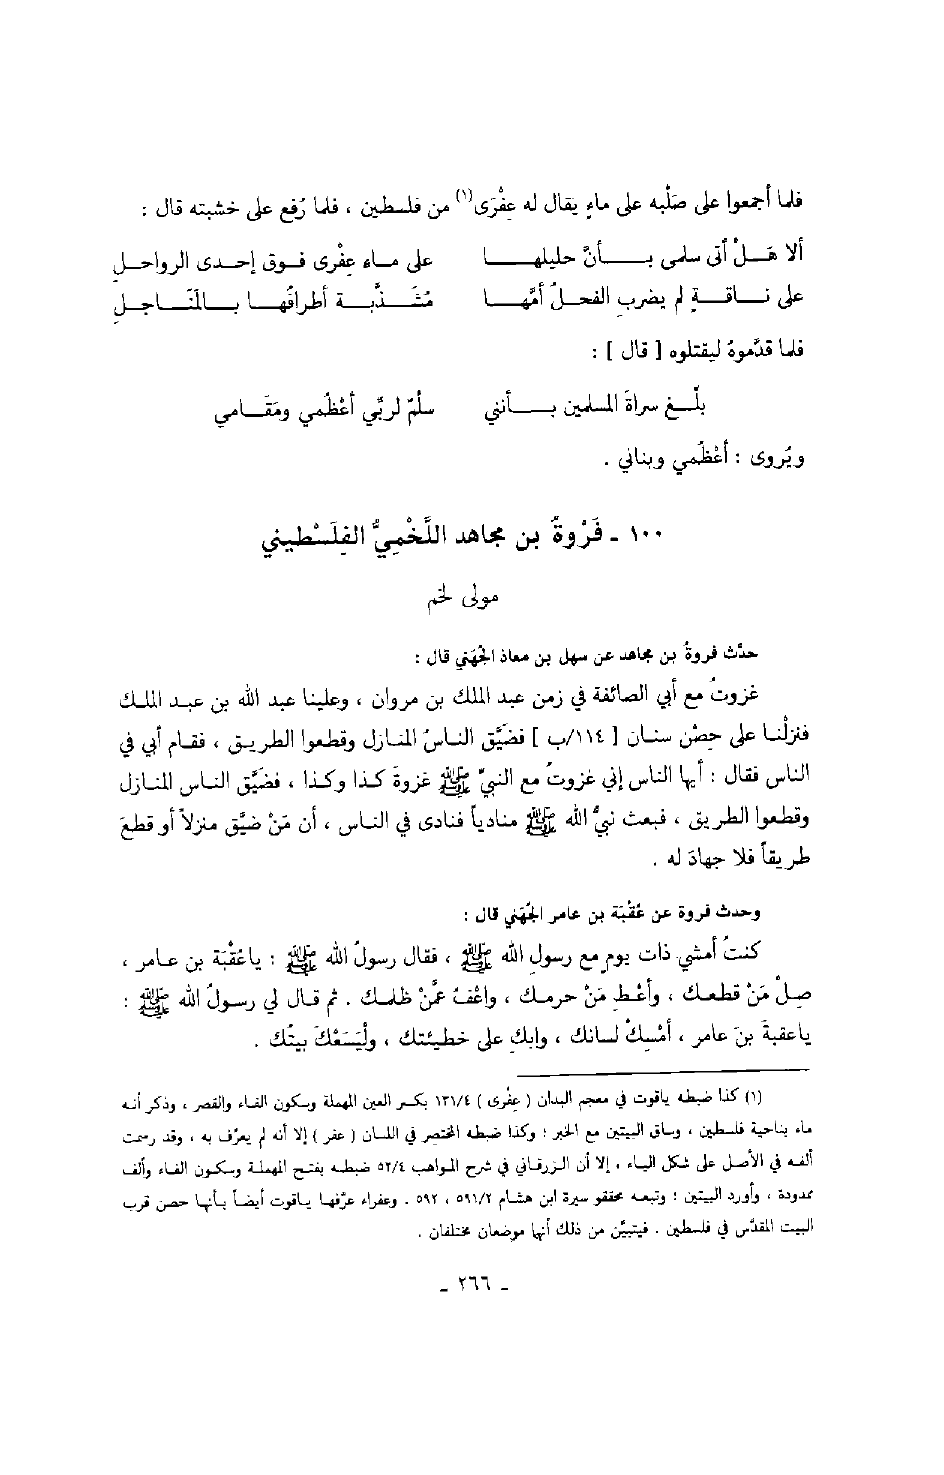 فلما أجمعوا على صَلْبه على ماءٍ يقال له عِفْرَى(١) من فلسطين ، فلما رُفع على خشبته قال :
ألا هَلْ أتى سلمى بأنَّ حليلها على ماء عِفْرى فوق إحدى الرواحلِ
على ناقةٍ لم يضربِ الفحلُ أمَّها مُشَذَّبة أطرافُها بالمَنَاجلِ
فلما قدَّموهُ ليقتلوه [ قال ] :
بلِّغ سراةَ المسلمين بأنني سلْمٌ لربِّي أعْظُمي ومَقَامي
ويُروى : أعْظُمي وبناني .
١٠٠ - فَرْوةُ بن مجاهد اللَّخْميُّ الفِلَسْطيني
مولى لخم
حدَّث فروةُ بن مجاهد عن سهل بن معاذ الجهَني قال :
غزوتُ مع أبي الصائفة في زمن عبد الملك بن مروان ، وعلينا عبد الله بن عبد الملك
فنزلْنا على حِصْن سنان [ ١١٤/ب ] فضيَّق الناسُ المنازل وقطعوا الطريق ، فقام أبي في
الناس فقال : أيها الناس إني غزوتُ مع النبيِّ ﷺ غزوةَ كذا وكذا ، فضيَّق الناس المنازل
وقطعوا الطريق ، فبعث نبيُّ الله ﷺ منادياً فنادى في الناس ، أن مَنْ ضيَّق منزلاً أو قطعَ
طريقاً فلا جهادَ له .
وحدث فروة عن عُقْبَة بن عامر الجُهَني قال :
كنتُ أمشي ذات يوم مع رسول الله ﷺ ، فقال رسولُ الله ﷺ : ياعُقْبَة بن عامر ،
صِلْ مَنْ قطعك ، وأعْطِ مَنْ حرمك ، واعْفُ عمَّنْ ظلمك . ثم قال لي رسولُ الله ﷺ :
ياعقبةَ بنَ عامر ، أمْسِكْ لسانك ، وابكِ على خطيئتك ، ولْيَسَعْكَ بيتُك .
(١) كذا ضبطه ياقوت في معجم البلدان ( عِفْرى ) ١٣١/٤ بكسر العين المهملة وسكون الفاء والقصر ، وذكر أنه
ماء بناحية فلسطين ، وساق البيتين مع الخبر ؛ وكذا ضبطه المختصر في اللسان ( عفر ) إلا أنه لم يعرِّف به ، وقد رسمت
ألفه في الأصل على شكل الياء ، إلا أن الزرقاني في شرح المواهب ٥٢/٤ ضبطه بفتح المهملة وسكون الفاء وألف
ممدودة ، وأورد البيتين ؛ وتبعه محققو سيرة ابن هشام ٥٩١/٢ ، ٥٩٢ . وعفراء عرَّفها ياقوت أيضاً بأنها حصن قرب
البيت المقدَّس في فلسطين . فيتبيَّن من ذلك أنها موضعان مختلفان .
- ٢٦٦ -